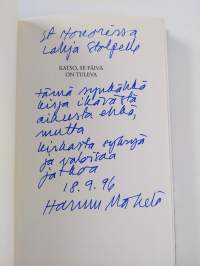 Lahja Stolpelle
KATSO, SE PÄIVÄ
ON TULEVA
tämä synkähkö
kirja ikävästä
aiheesta ehkä,
mutta
kirkasta syksyä
ja valoisaa
jatkoa
18.9.96
Hannu Mäkelä